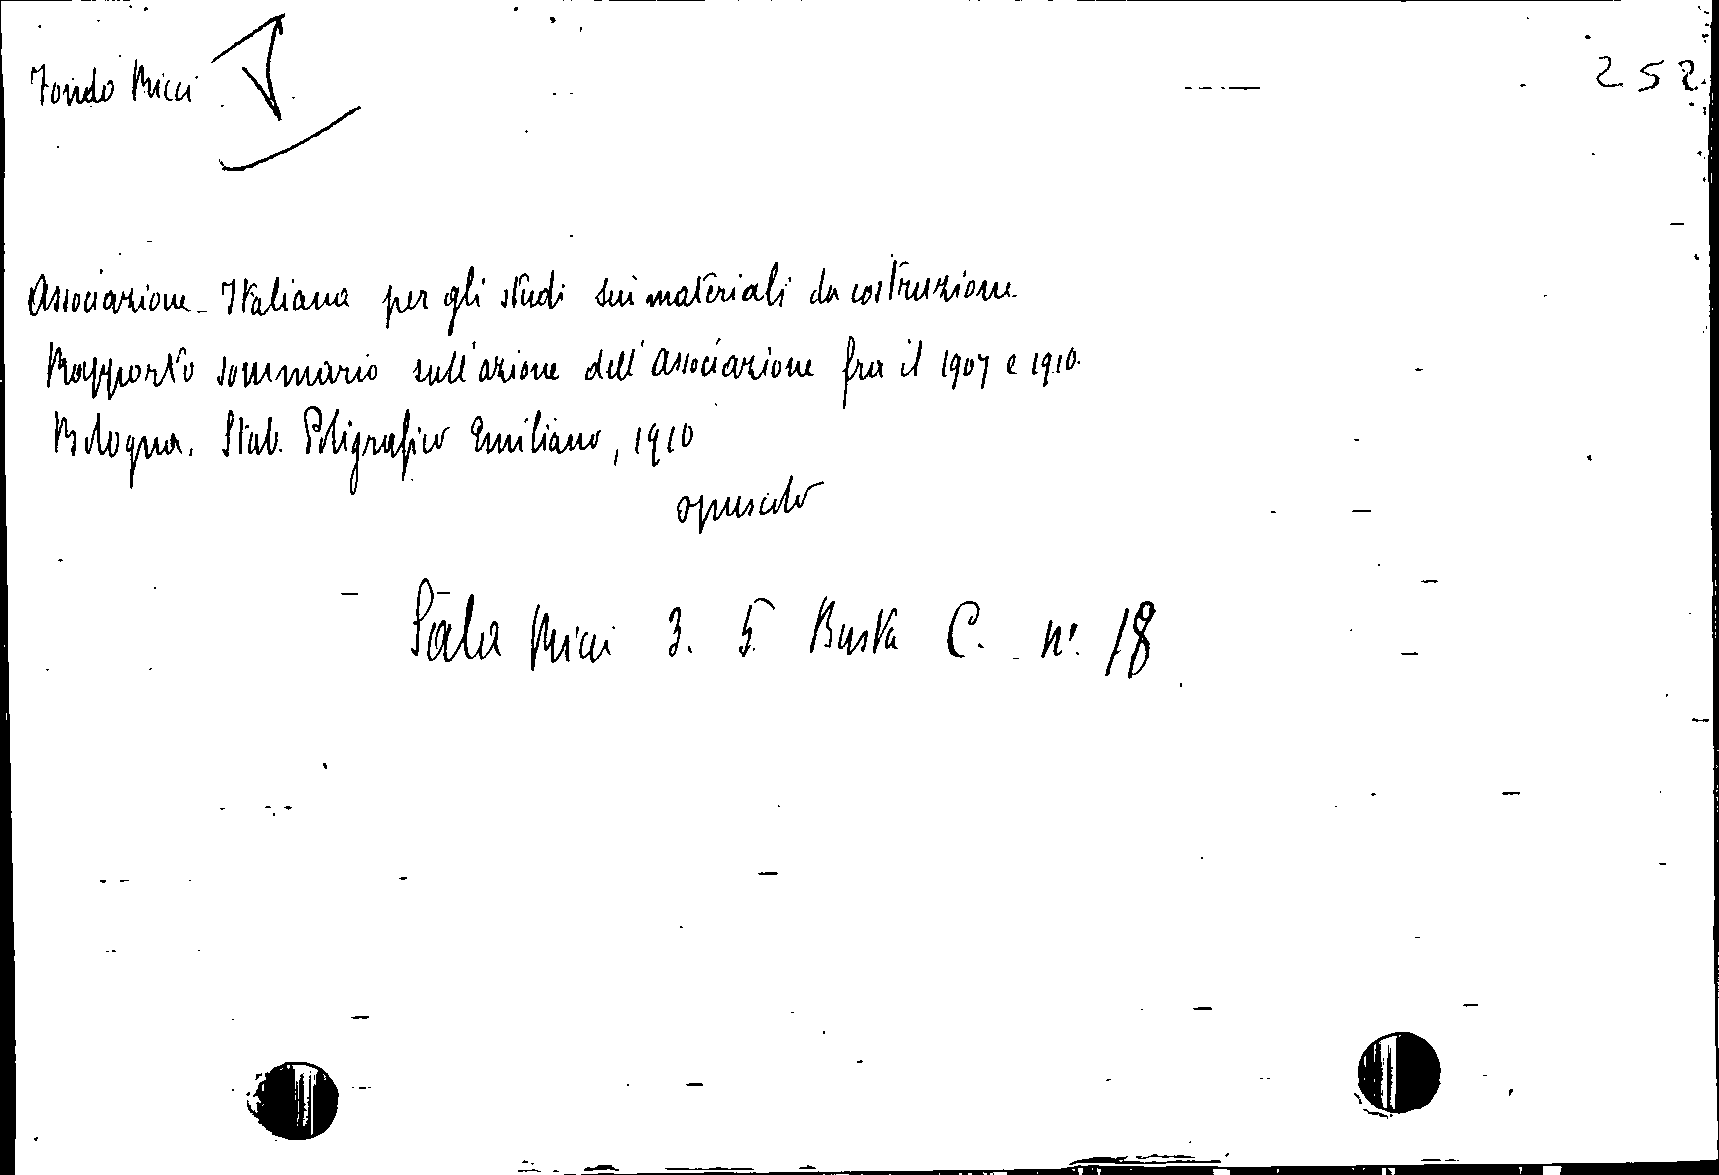 Fondo Ricci
252
Associazione Italiana per gli studi sui materiali da costruzione.
Rapporto sommario sull'azione dell'Associazione fra il 1907 e 1910.
Bologna. Stab. Poligrafico Emiliano, 1910
opuscolo
Sala Ricci 3. 5. Busta C. n°. 18